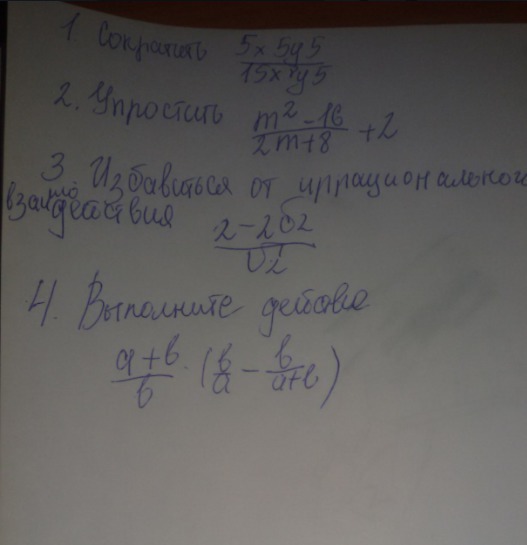 1. Сократить 5x 5y5 / 15x7y5
2. Упростить m²-16 / 2m+8 +2
3 Избавиться от иррационального
взаимодействия 2-2√2 / √2
4. Выполните действие
a+b / b · (b/a - b/a+b)